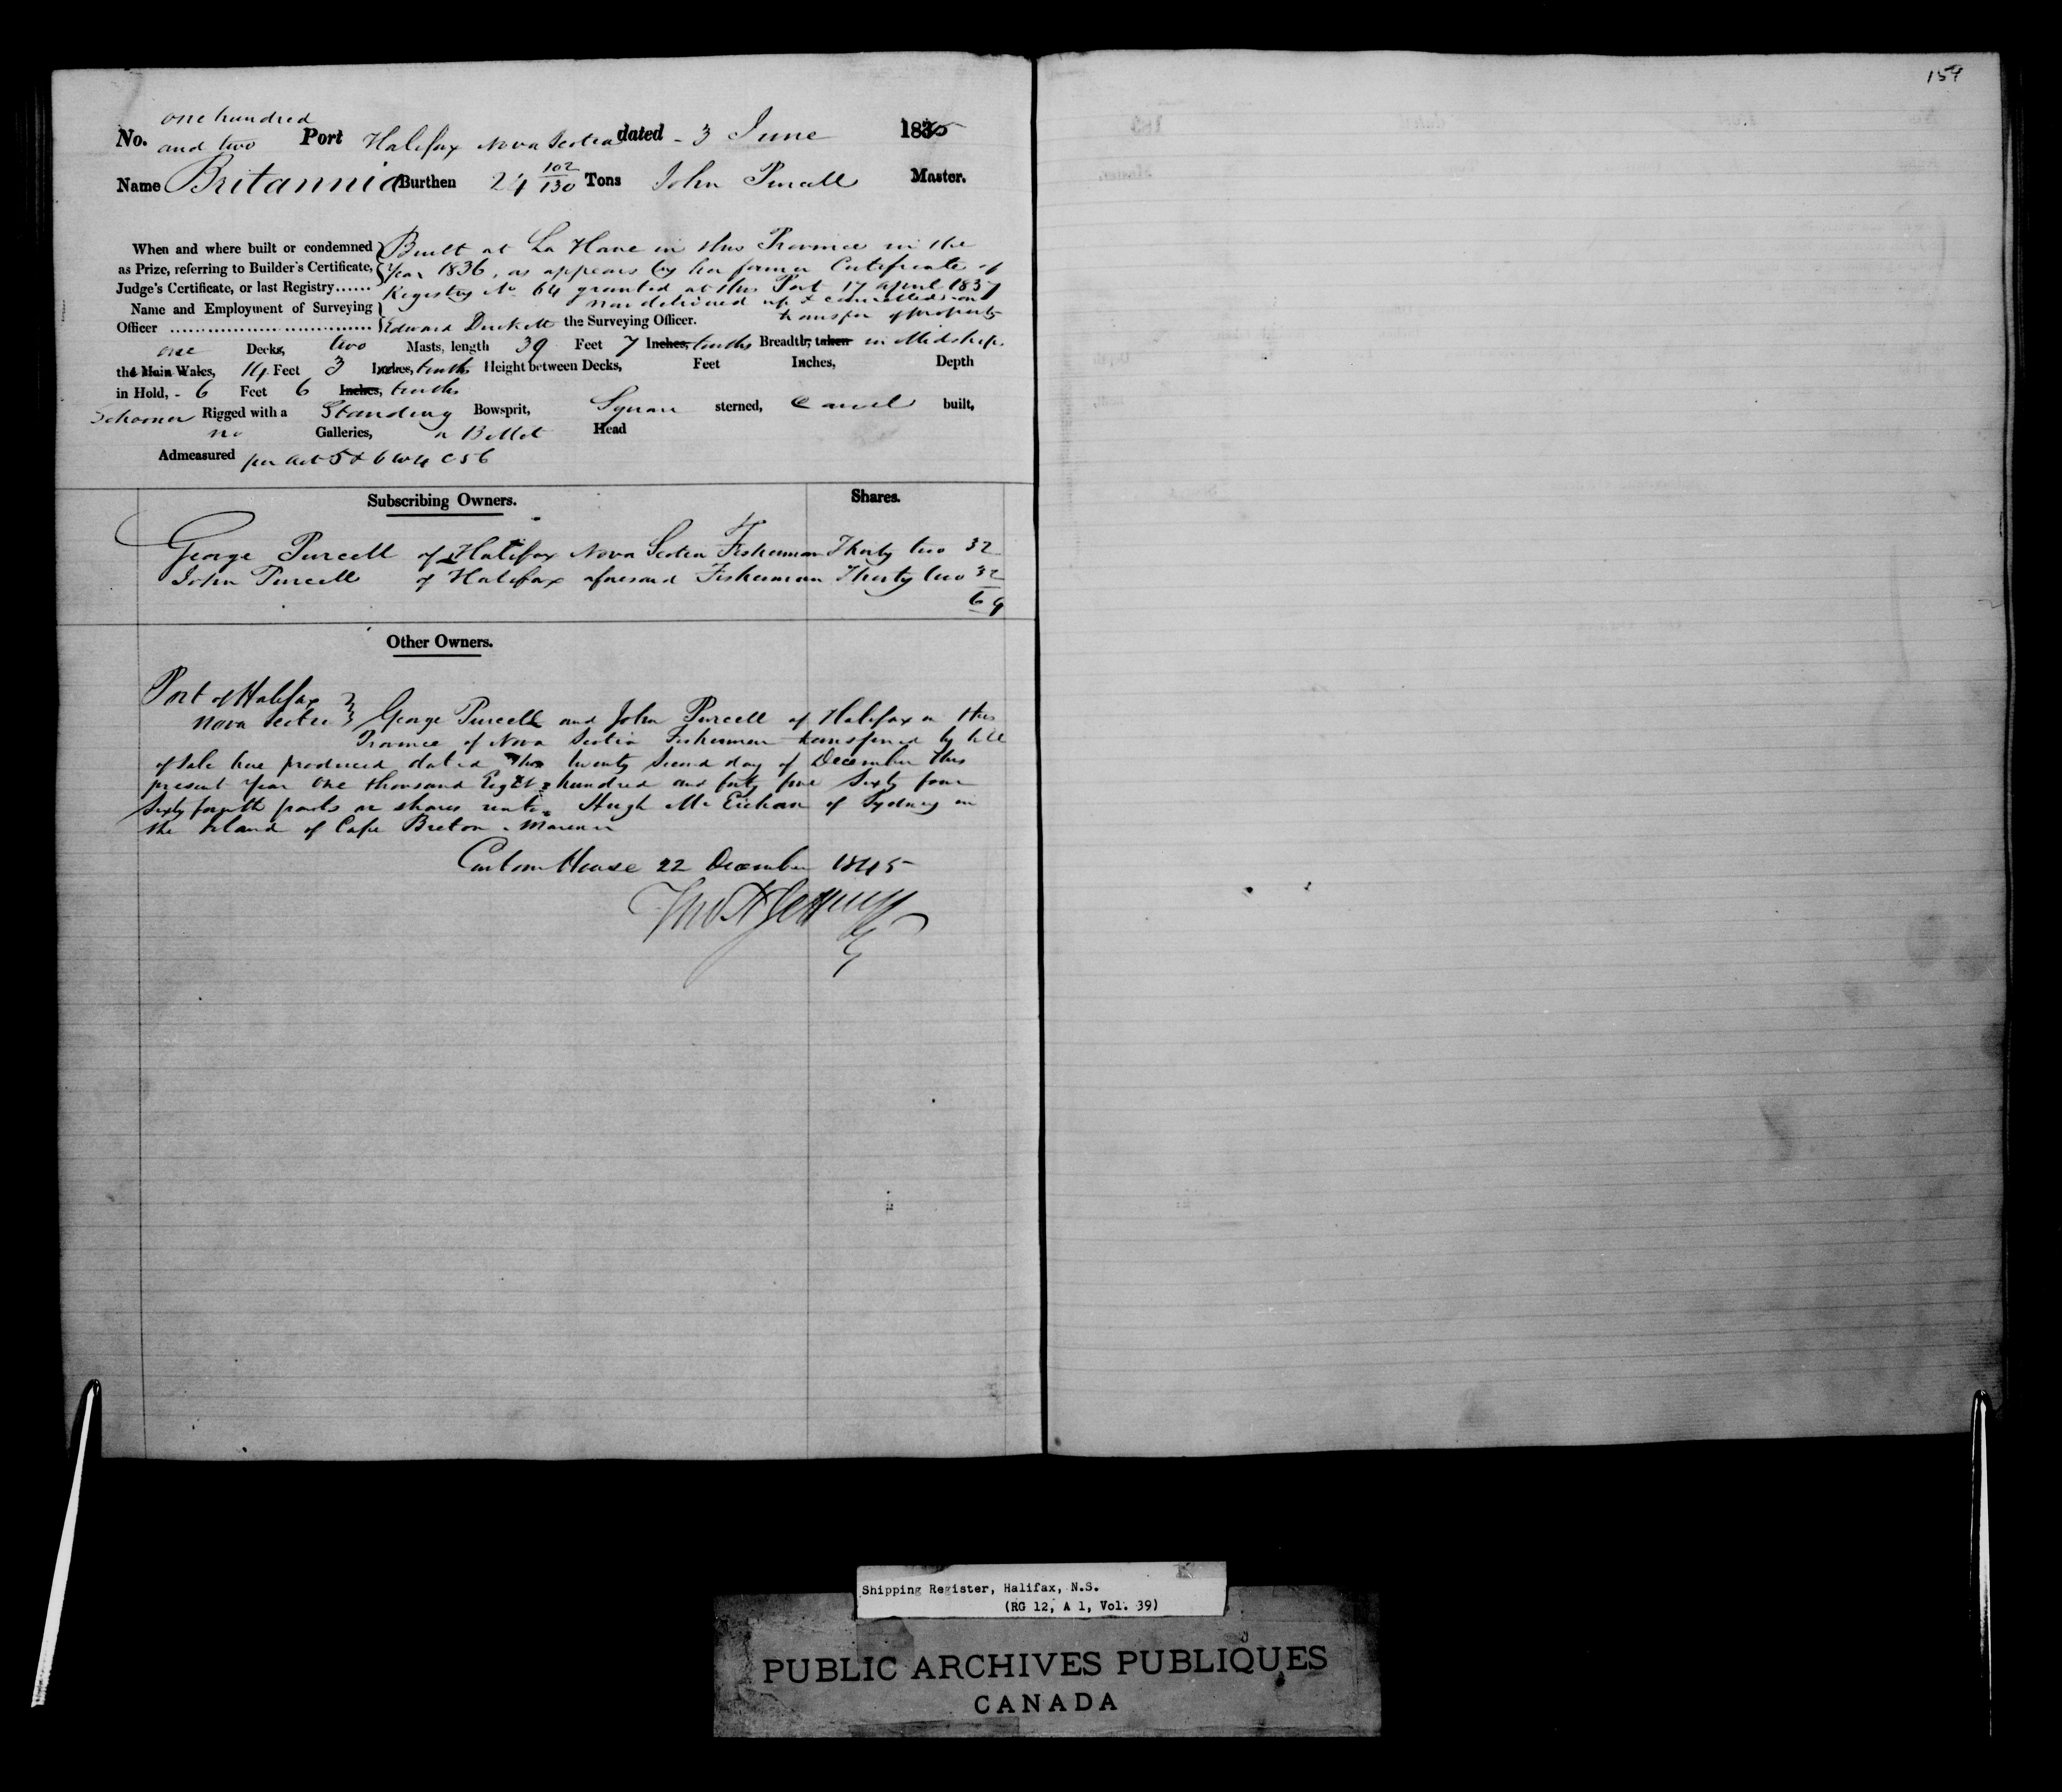 159
one hundred
No. and two Port Halifax Nova Scotia dated - 3 June 1845
Name Britannia Burthen 24 102/130 Tons John Purcell Master.
When and where built or condemned Built at La Have in this Province in the
as Prize, referring to Builder's Certificate, Year 1836, as appears by her former Certificate of
Judge's Certificate, or last Registry...... Registry No 64 granted at this Port 17 April 1837
Name and Employment of Surveying now delivered up & cancelled on
Officer Edward Duckett the Surveying Officer. transfer of property
one Decks, two Masts, length 39 Feet 7 Inches, tenths Breadth, taken in Midships
the Main Wales, 14 Feet 3 Inches, tenths Height between Decks, Feet Inches, Depth
in Hold, - 6 Feet 6 Inches, tenths
Schooner Rigged with a Standing Bowsprit, Square sterned, Carvel built,
no Galleries, a Billet Head
Admeasured per Act 5 & 6 W 4 C 56
Subscribing Owners. Shares.
George Purcell of Halifax Nova Scotia Fisherman Thirty two 32
John Purcell of Halifax aforesaid Fisherman Thirty two 32
64
Other Owners.
Port of Halifax
Nova Scotia George Purcell and John Purcell of Halifax in the
Province of Nova Scotia Fishermen transferred by bill
of sale here produced dated the twenty second day of December this
present Year One thousand Eight hundred and forty five Sixty four
Sixty fourth parts or shares unto Hugh Mc Eachan of Sydney in
the Island of Cape Breton - Mariner
Custom House 22 December 1845
Shipping Register, Halifax, N.S.
(RG 12, A 1, Vol. 39)
PUBLIC ARCHIVES PUBLIQUES
CANADA